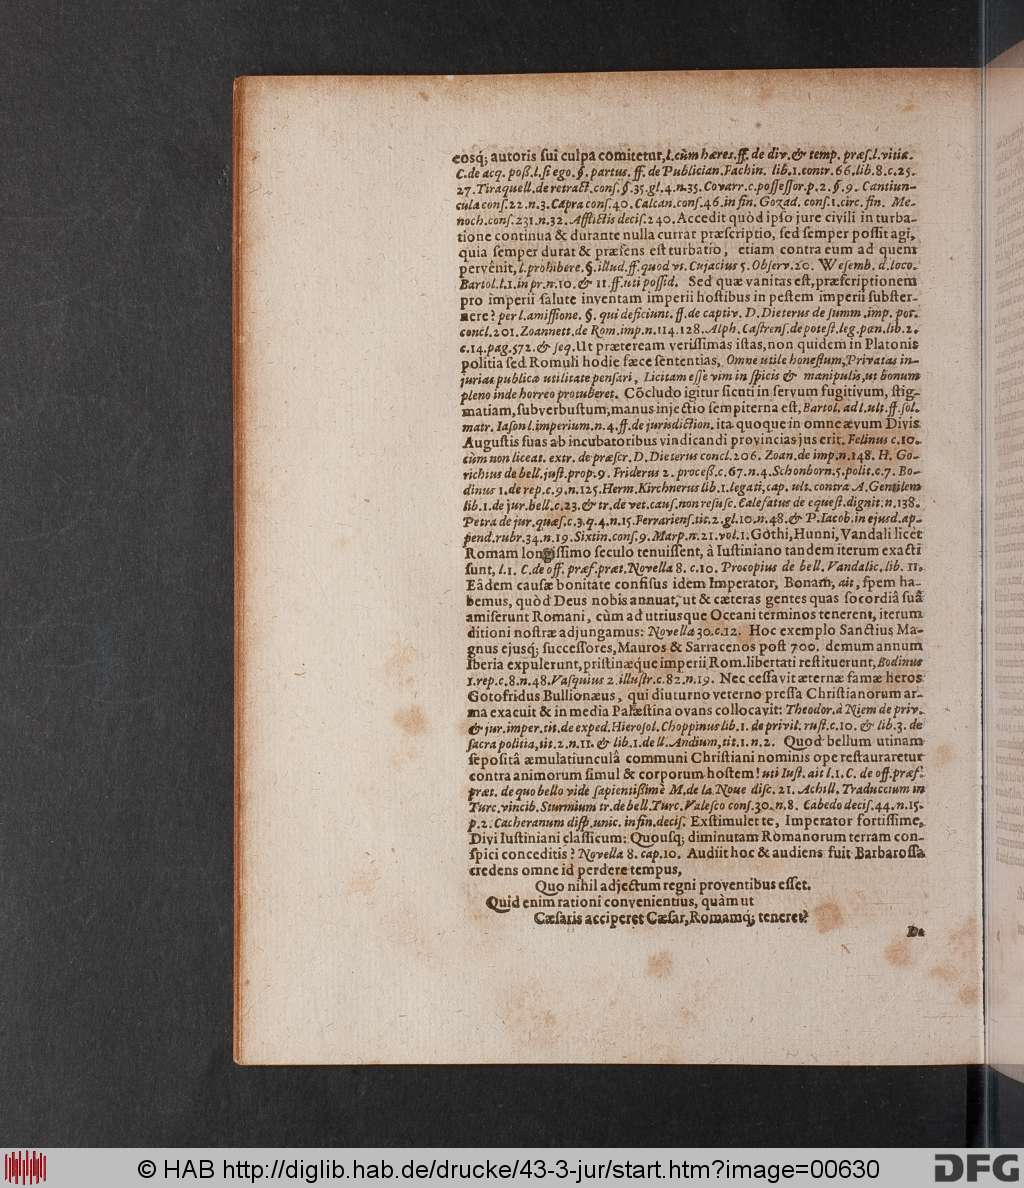 eosq́; autoris sui culpa comitetur, l. cùm hæres. ff. de div. & temp. præs. l. vitia.
C. de acq. poß. l. si ego. §. partus. ff. de Publician. Fachin. lib. 1. contr. 66. lib. 8. c. 25.
27. Tiraquell. de retract. cons. §. 35. gl. 4. n. 35. Covarr. c. possessor. p. 2. §. 9. Cantiun-
cula cons. 22. n. 3. Capra cons. 40. Calcan. cons. 46. in fin. Gozad. cons. 1. circ. fin. Me-
noch. cons. 231. n. 32. Afflictis decis. 240. Accedit quòd ipso jure civili in turba-
tione continua & durante nulla currat præscriptio, sed semper possit agi,
quia semper durat & præsens est turbatio, etiam contra eum ad quem
pervênit, l. prohibere. §. illud. ff. quod vi. Cujacius 5. Observ. 20. Wesemb. d. loco.
Bartol. l. 1. in pr. n. 10. & 11. ff. uti possid. Sed quæ vanitas est, præscriptionem
pro imperii salute inventam imperii hostibus in pestem imperii subster-
nere? per l. amissione. §. qui deficiunt. ff. de captiv. D. Dieterus de summ. imp. pot.
concl. 201. Zoannett. de Rom. imp. n. 114. 128. Alph. Castrens. de potest. leg. pœn. lib. 2.
c. 14. pag. 572. & seq. Ut præteream verissimas istas, non quidem in Platonis
politia sed Romuli hodie fæce sententias, Omne utile honestum, Privatas in-
jurias publica utilitate pensari, Licitam esse vim in spicis & manipulis, ut bonum
pleno inde horreo protuberet. Cõcludo igitur sicuti in servum fugitivum, stig-
matiam, subverbustum, manus injectio sempiterna est, Bartol. ad l. ult. ff. sol.
matr. Iason l. imperium. n. 4. ff. de jurisdiction. ita quoque in omne ævum Divis
Augustis suas ab incubatoribus vindicandi provincias jus erit. Felinus c. 10.
cùm non liceat. extr. de præscr. D. Dieterus concl. 206. Zoan. de imp. n. 148. H. Go-
richius de bell. just. prop. 9. Friderus 2. proceß. c. 67. n. 4. Schonborn. 5. polit. c. 7. Bo-
dinus 1. de rep. c. 9. n. 125. Herm. Kirchnerus lib. 1. legati, cap. ult. contra A. Gentilem
lib. 1. de jur. bell. c. 23. & tr. de vet. caus. non resusc. Calefatus de equest. dignit. n. 138.
Petra de jur. quæs. c. 3. q. 4. n. 15. Ferrariens. tit. 2. gl. 10. n. 48. & P. Iacob. in ejusd. ap-
pend. rubr. 34. n. 19. Sixtin. cons. 9. Marp. n. 21. vol. 1. Gothi, Hunni, Vandali licet
Romam longissimo seculo tenuissent, à Iustiniano tandem iterum exacti
sunt, l. 1. C. de off. præf. præt. Novella 8. c. 10. Procopius de bell. Vandalic. lib. 11.
Eâdem causæ bonitate confisus idem Imperator, Bonam, ait, spem ha-
bemus, quòd Deus nobis annuat, ut & cæteras gentes quas socordiâ suâ
amiserunt Romani, cùm ad utriusque Oceani terminos tenerent, iterum
ditioni nostræ adjungamus: Novella 30. c. 12. Hoc exemplo Sanctius Ma-
gnus ejusq́; successores, Mauros & Sarracenos post 700. demum annum
Iberia expulerunt, pristinæque imperii Rom. libertati restituerunt, Bodinus
1. rep. c. 8. n. 48. Vasquius 2. illustr. c. 82. n. 19. Nec cessavit æternæ famæ heros
Gotofridus Bullionæus, qui diuturno veterno pressa Christianorum ar-
ma exacuit & in media Palæstina ovans collocavit: Theodor. à Niem de priv.
& jur. imper. tit. de exped. Hierosol. Choppinus lib. 1. de privil. rust. c. 10. & lib. 3. de
sacra politia, tit. 2. n. 11. & lib. 1. de ll. Andium, tit. 1. n. 2. Quod bellum utinam
sepositâ æmulatiunculâ communi Christiani nominis ope restauraretur
contra animorum simul & corporum hostem! uti Iust. ait l. 1. C. de off. præf.
præt. de quo bello vide sapientißimè M. de la Noue disc. 21. Achill. Traduccium in
Turc. vincib. Sturmium tr. de bell. Turc. Valesco cons. 30. n. 8. Cabedo decis. 44. n. 15.
p. 2. Cacheranum disp. unic. in fin. decis. Exstimulet te, Imperator fortissime,
Divi Iustiniani classicum: Quousq; diminutam Romanorum terram con-
spici conceditis? Novella 8. cap. 10. Audiit hoc & audiens fuit Barbarossa
credens omne id perdere tempus,
Quo nihil adjectum regni proventibus esset.
Quid enim rationi convenientius, quàm ut
Cæsaris acciperet Cæsar, Romamq́; teneret?
© HAB http://diglib.hab.de/drucke/43-3-jur/start.htm?image=00630
DFG